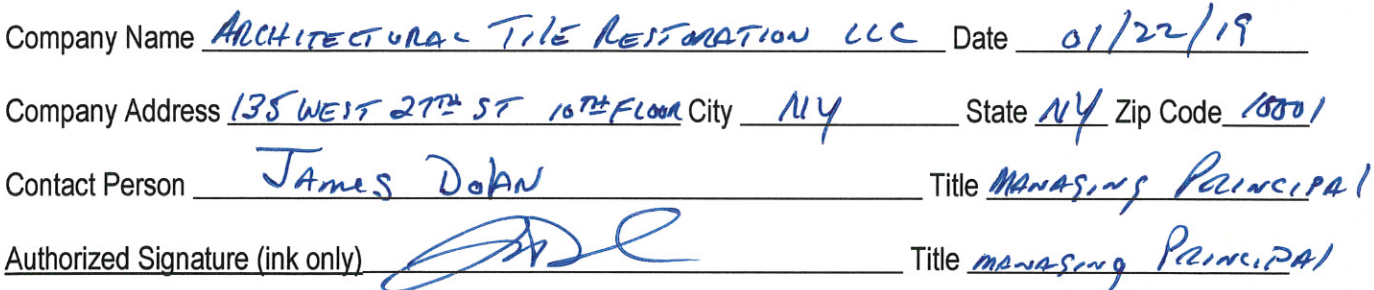 Company Name ARCHITECTURAL TILE RESTORATION LLC Date 01/22/19
Company Address 135 WEST 27TH ST 10TH FLOOR City NY State NY Zip Code 10001
Contact Person JAMES DOLAN Title MANAGING PRINCIPAL
Authorized Signature (ink only) Title MANAGING PRINCIPAL